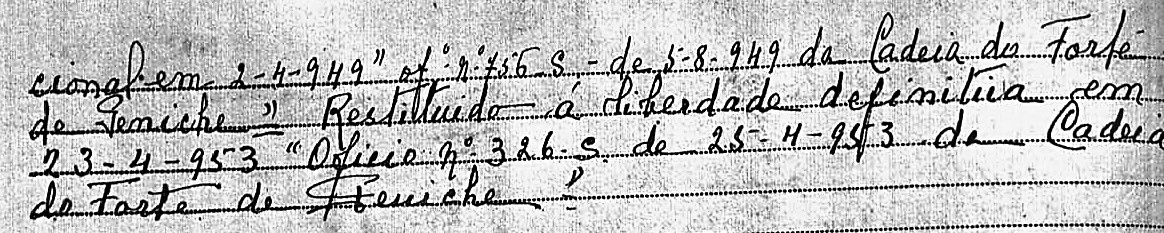 cional em 2-4-949" of.º nº 756-S.- de 5-8-949 da Cadeia do Forte
de Peniche " Restituido á liberdade definitiva em
23-4-953 "Oficio nº 326-S. de 25-4-953 da Cadeia
do Forte de Peniche "